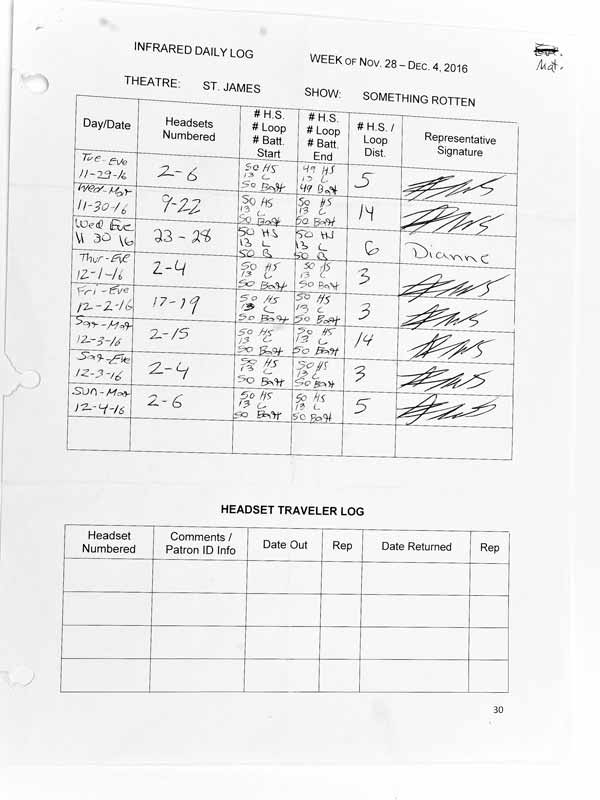 Mat.
INFRARED DAILY LOG WEEK OF NOV. 28 – DEC. 4, 2016
THEATRE: ST. JAMES SHOW: SOMETHING ROTTEN
Day/Date Headsets Numbered # H.S. # Loop # Batt. Start # H.S. # Loop # Batt. End # H.S. / Loop Dist. Representative Signature
Tue-Eve 11-29-16 2-6 50 HS 13 L 50 Batt 49 HS 13 L 49 Batt 5
Wed-Mat 11-30-16 9-22 50 HS 13 L 50 Batt 50 HS 13 L 50 Batt 14
Wed Eve 11 30 16 23-28 50 HS 13 L 50 B 50 HS 13 L 50 B 6 Dianne
Thur-Eve 12-1-16 2-4 50 HS 13 L 50 Batt 50 HS 13 L 50 Batt 3
Fri-Eve 12-2-16 17-19 50 HS 13 L 50 Batt 50 HS 13 L 50 Batt 3
Sat-Mat 12-3-16 2-15 50 HS 13 L 50 Batt 50 HS 13 L 50 Batt 14
Sat-Eve 12-3-16 2-4 50 HS 13 L 50 Batt 50 HS 13 L 50 Batt 3
Sun-Mat 12-4-16 2-6 50 HS 13 L 50 Batt 50 HS 13 L 50 Batt 5
HEADSET TRAVELER LOG
Headset Numbered Comments / Patron ID Info Date Out Rep Date Returned Rep
30